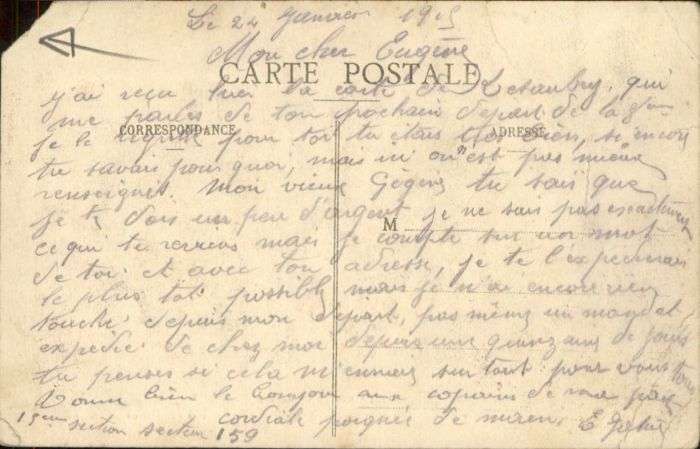 Le 24 Janvier 1915
Mon cher Eugène
CARTE POSTALE
j'ai reçu hier la carte de qui
me parles de ton prochain départ de la
CORRESPONDANCE
ADRESSE
je le pour toi tu étais très bien, si encore
tu savais pourquoi, mais ici on n'est pas mieux
renseigné. Mon vieux Gégène tu sais que
je te dois un peu d'argent, je ne sais pas exactement
M
ce qui te reviens mais je compte sur un mot
de toi et avec ton adresse, je te l'expedierais
le plus tot possible, mais je n'ai encore rien
touché depuis mon départ, pas même un mandat
expedié de chez moi depuis une quinzaine de jours
tu penses si cela m'ennuie surtout pour vous
Donne bien le bonjour aux copains de ma part
cordiale poignée de mains. E
15eme section secteur 159